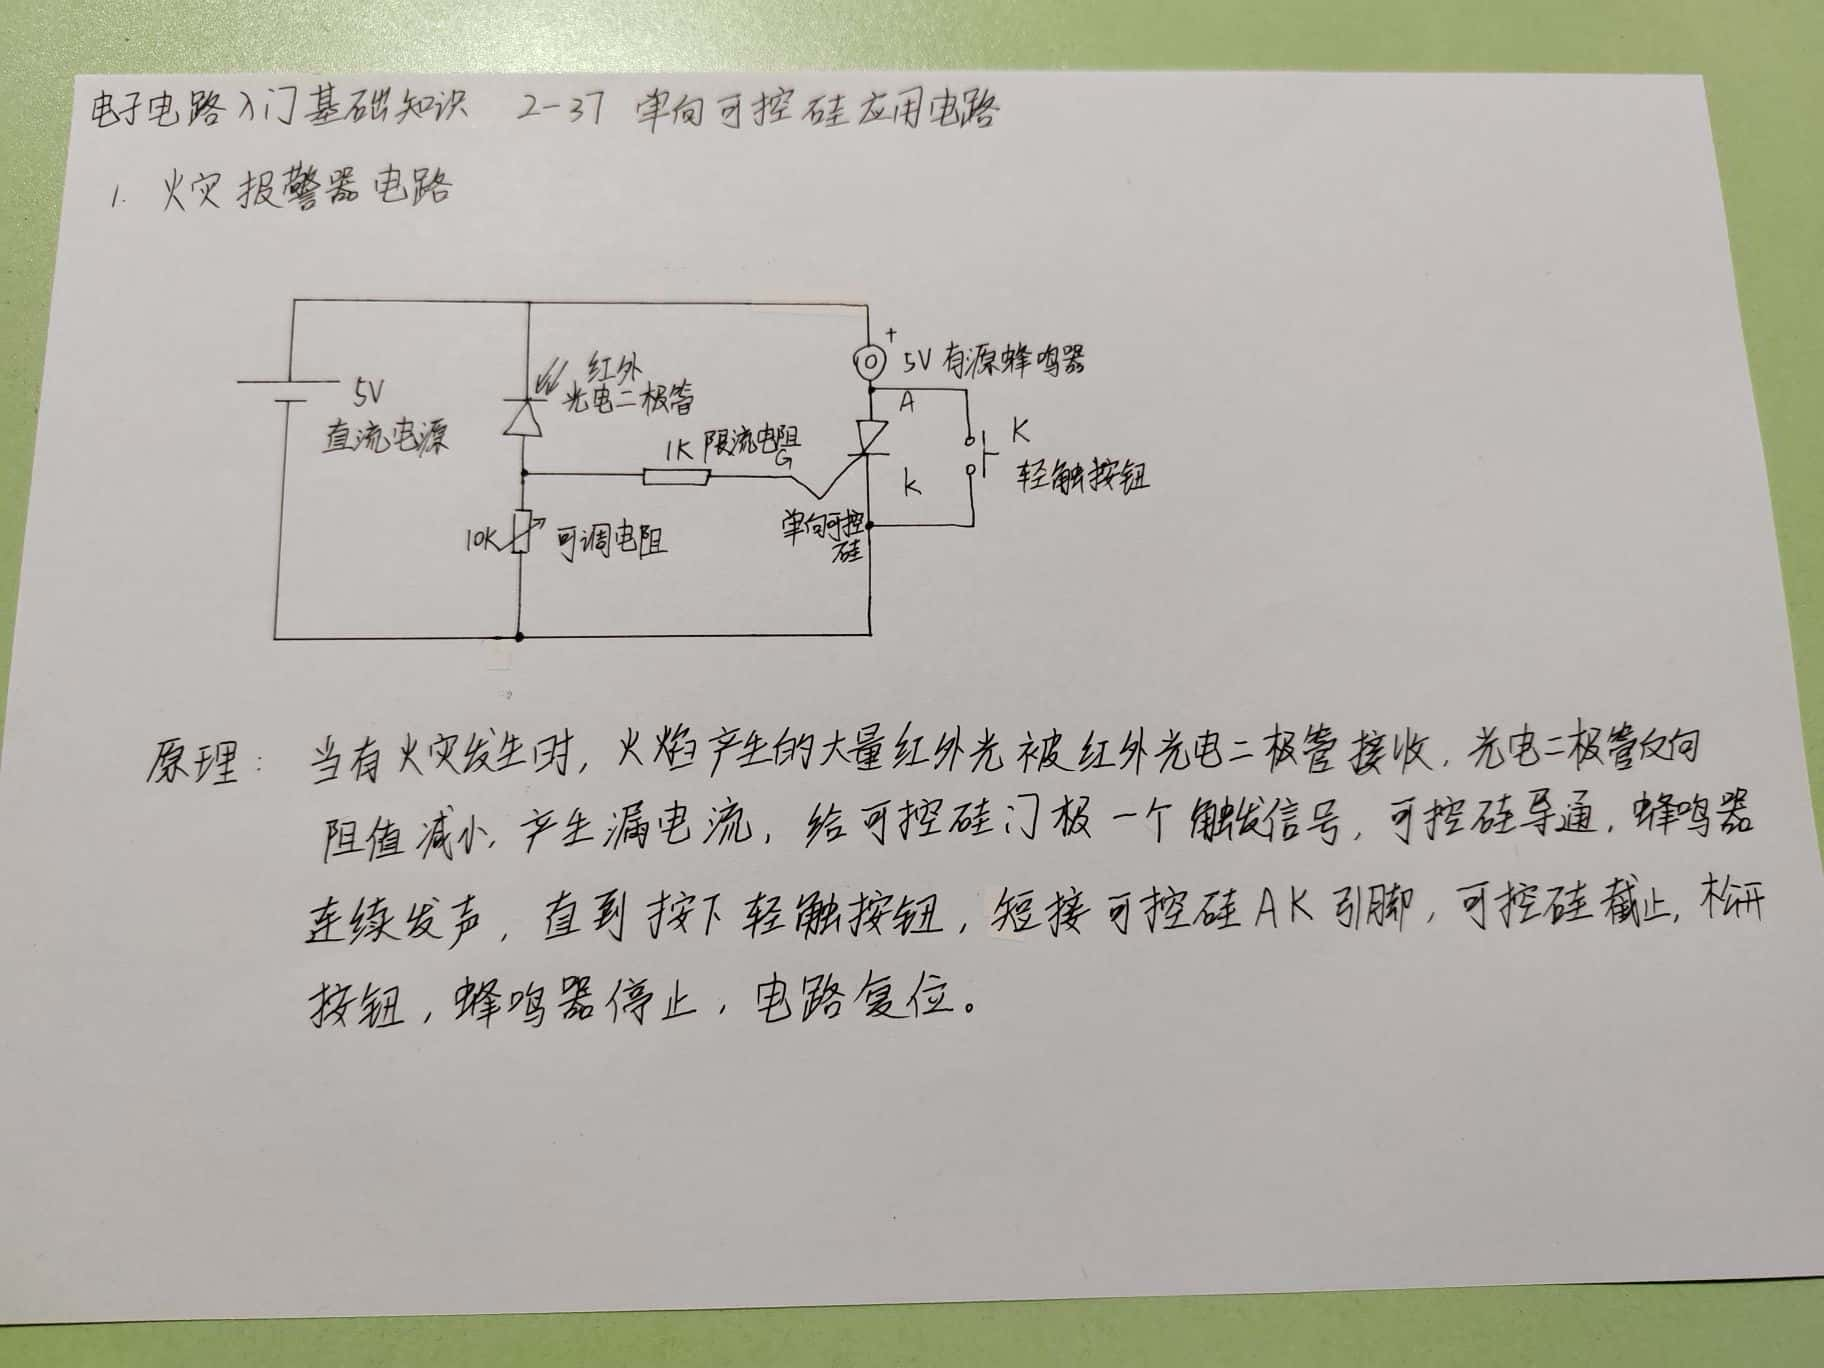 电子电路入门基础知识 2-37 单向可控硅应用电路
1. 火灾报警器电路
+
5V 有源蜂鸣器
红外
光电二极管
5V
直流电源
A
K
轻触按钮
1K 限流电阻
G
K
10K 可调电阻
单向可控
硅
原理: 当有火灾发生时, 火焰产生的大量红外光被红外光电二极管接收, 光电二极管反向
阻值减小, 产生漏电流, 给可控硅门极一个触发信号, 可控硅导通, 蜂鸣器
连续发声, 直到按下轻触按钮, 短接可控硅AK引脚, 可控硅截止, 松开
按钮, 蜂鸣器停止, 电路复位。